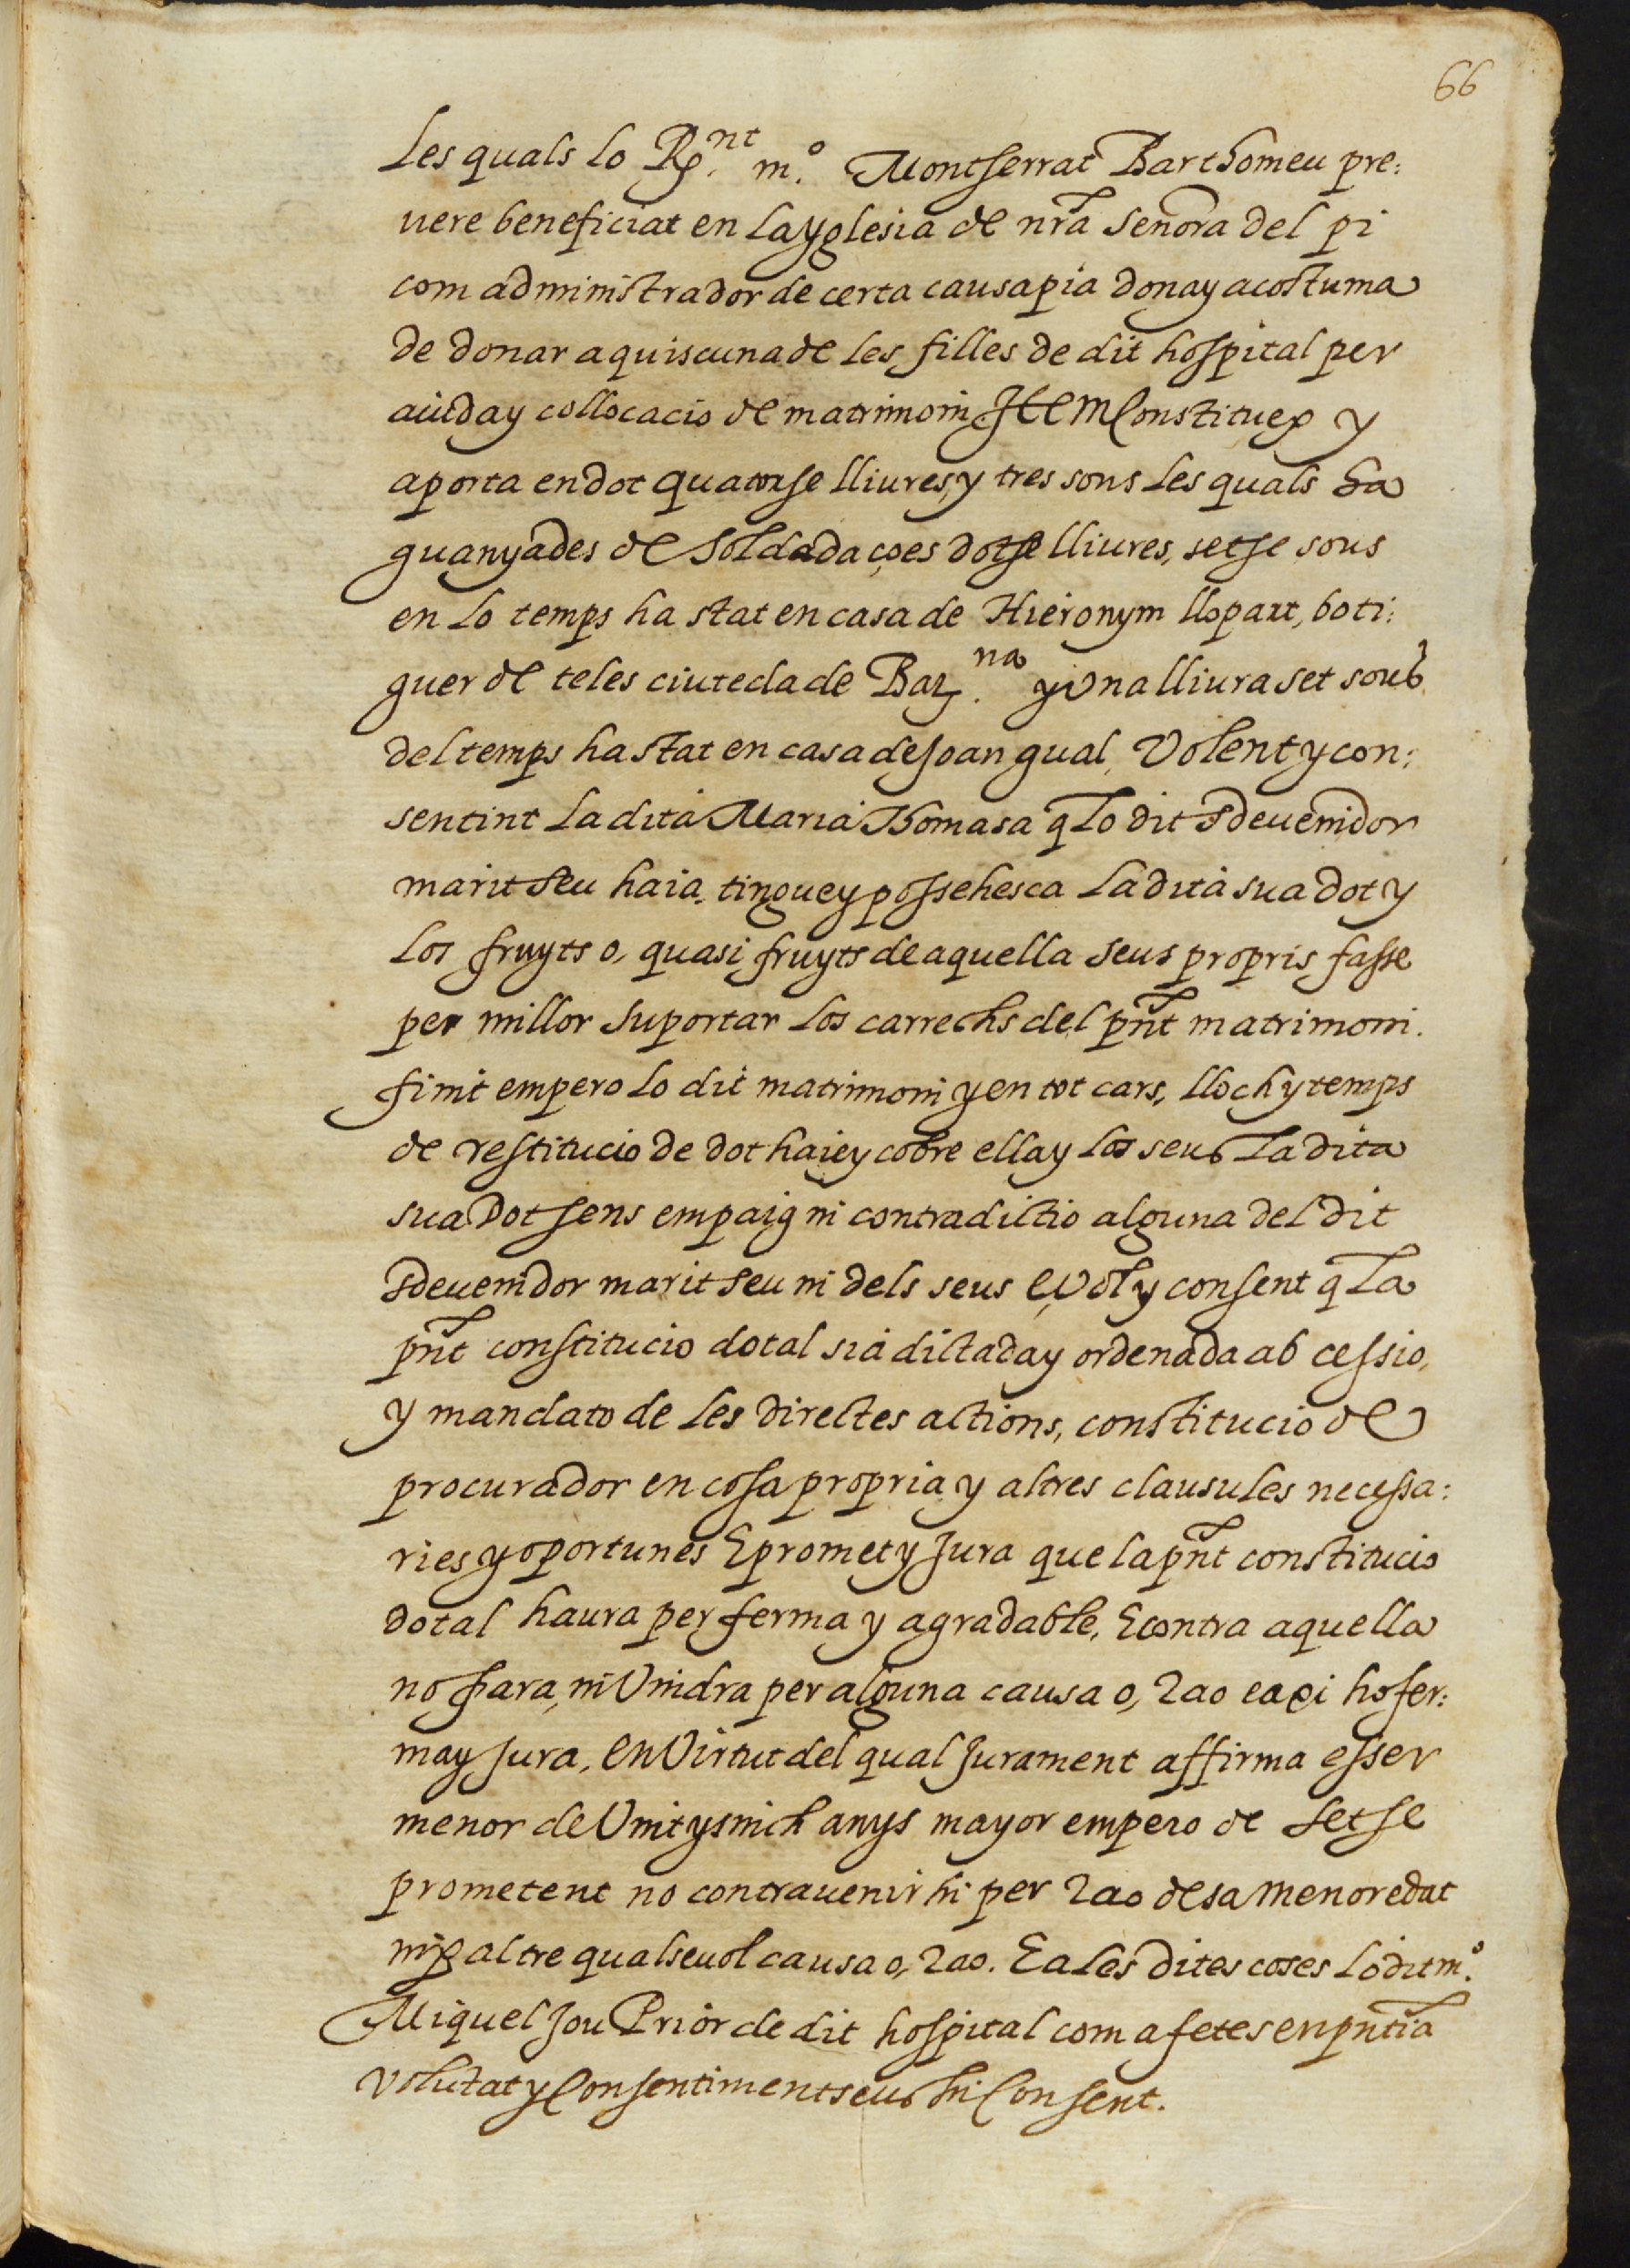 66
Les quals lo R.nt m.o Montserrat Barthomeu pre:
uere beneficiat en la yglesia de nra señora del pi
com administrador de certa causa pia dona y acostuma
de donar a quiscuna de les filles de dit hospital per
aiuda y collocacio de matrimoni Item Constituex y
aporta en dot quatorse lliures, y tres sous les quals ha
guanyades de soldada ço es dotse lliures, setse sous
en lo temps ha stat en casa de Hieronym llopart, boti:
guer de teles ciuteda de Bar.na y vna lliura set sous
del temps ha stat en casa de Joan gual, Volent y con:
sentint la dita Maria Thomasa q lo dit sdeuenidor
marit seu haia, tingue y possehesca la dita sua dot y
los fruyts o, quasi fruyts de aquella seus propris fasse
per millor suportar los carrechs del pnt matrimoni.
finit empero lo dit matrimoni y en tot cars, lloch y temps
de restitucio de dot haie y cobre ella y los seus la dita
sua dot sens empaig ni contradictio alguna del dit
sdeuenidor marit seu ni dels seus E vol y consent q la
pnt constitucio dotal sia dictada y ordenada ab cessio,
y mandato de les directes actions, constitucio de
procurador en cosa propria y altres clausules necessa:
ries y oportunes E promet y Jura que la pnt constitucio
dotal haura per ferma y agradable, E contra aquella
no fara, ni Vindra per alguna causa o, rao e axi ho fer:
ma y Jura, En Virtut del qual Jurament affirma esser
menor de Vint y sinch anys mayor empero de setse
prometent no contrauenir hi per rao de sa menor edat
ni p altre qualseuol causa o, rao. E a les dites coses lo dit m.o
Miquel Jou Prior de dit hospital com a fetes en pntia
volutat y Consentiment seus hi Consent.